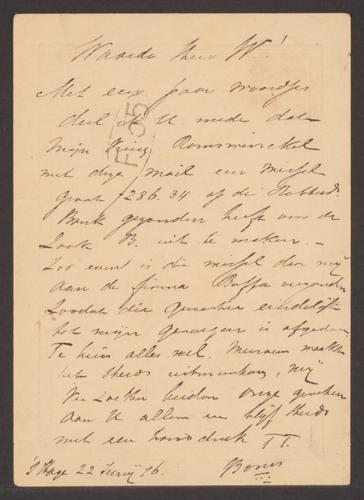 Waarde Heer W!
Met een paar woordjes
deel ik U mede dat
mijn
met deze mail een wissel
groot f 286.34 op de Rotterd.
Bank gezonden heeft om de
zaak B. uit te maken. —
Zoo even is die wissel door mij
aan de firma Buffa gezonden
zoodat die quaestie eindelijk
tot mijn genoegen is afgedaan
Te huis alles wel.
het steeds uitmuntend, mij
onze groeten
aan U allen en blijf steeds
met een handdruk TT.
'sHage 22 Junij 76.
F35